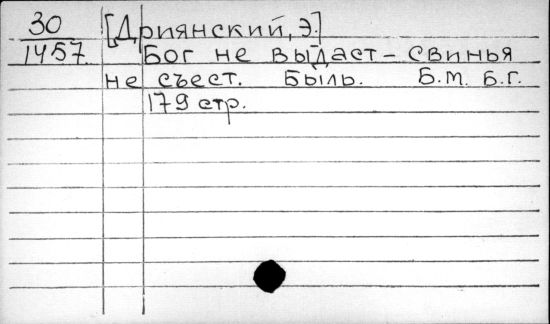 30 [Дриянский, Э.]
1457. Бог не выдаст - свинья
не съест. Быль. Б.м. Б.г.
179 стр.